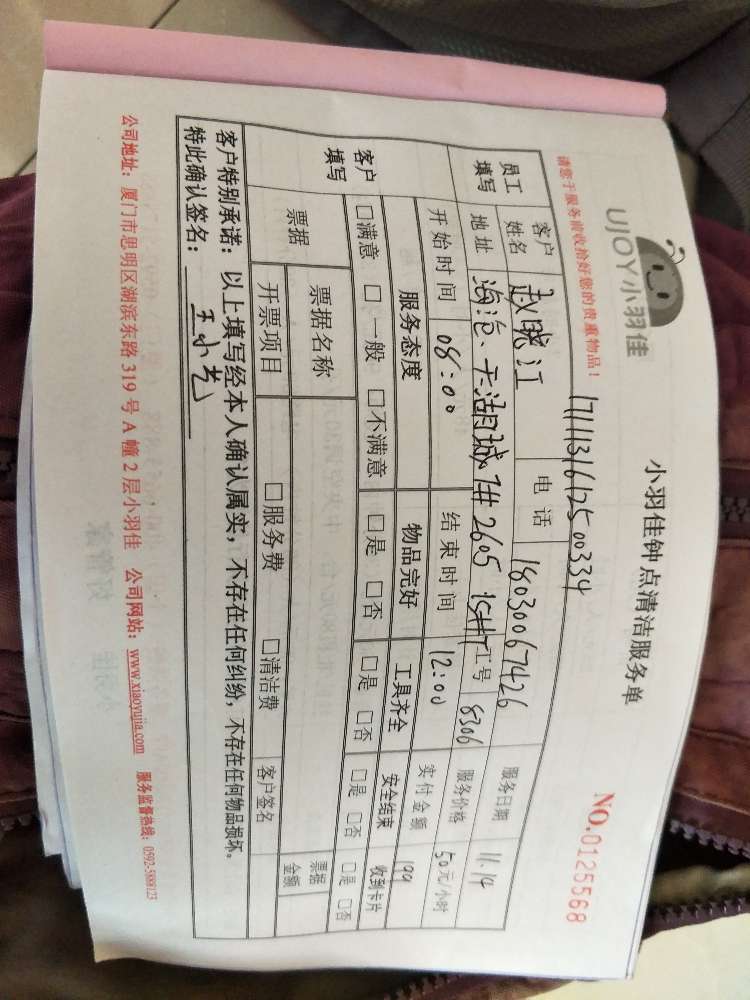 UJOY小羽佳
小羽佳钟点清洁服务单
NO.0125568
请您于服务前收拾好您的贵重物品！
1711131612500334
员工填写
客户姓名 赵晓江 电话 18030067426 服务日期 11.14
地址 海沧、天湖城 7# 2605 工号 8306 服务价格 50元/小时
开始时间 08:00 结束时间 12:00 实付金额 199
客户填写
服务态度 物品完好 工具齐全 安全结束 收到卡片
□满意 □一般 □不满意 □是 □否 □是 □否 □是 □否 □是 □否
票据 票据名称 票据金额
开票项目 □服务费 □清洁费 客户签名
客户特别承诺：以上填写经本人确认属实，不存在任何纠纷，不存在任何物品损坏。
特此确认签名：
公司地址：厦门市思明区湖滨东路 319 号 A 幢 2 层小羽佳 公司网站：www.xiaoyujia.com 服务监督热线：0592-5888123